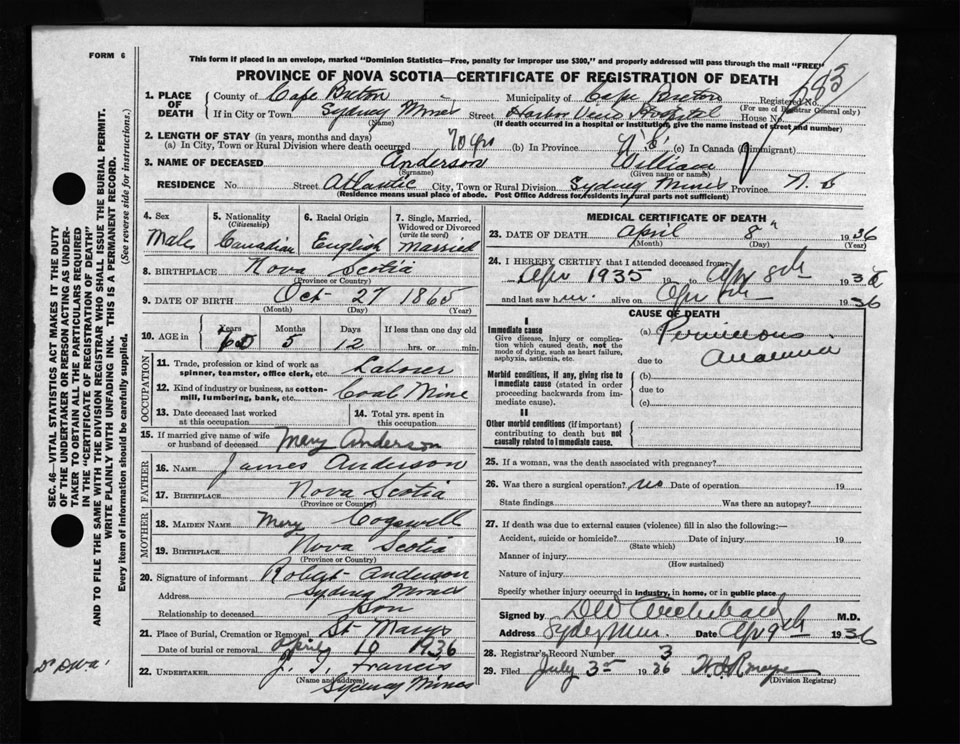 FORM 6
This form if placed in an envelope, marked "Dominion Statistics—Free, penalty for improper use $300," and properly addressed will pass through the mail "FREE"
PROVINCE OF NOVA SCOTIA—CERTIFICATE OF REGISTRATION OF DEATH
1. PLACE OF DEATH
County of Cape Breton Municipality of Cape Breton Registered No.
(For use of Registrar General only)
If in City or Town Sydney Mines Street Harbor View Hospital House No.
(Name) (If death occurred in a hospital or institution, give the name instead of street and number)
2. LENGTH OF STAY (in years, months and days)
(a) In City, Town or Rural Division where death occurred 70 yrs (b) In Province (c) In Canada (if immigrant)
3. NAME OF DECEASED Anderson William
(Surname) (Given name or names)
RESIDENCE No. Street Atlantic City, Town or Rural Division Sydney Mines Province N. S
(Residence means usual place of abode. Post Office Address for residents in rural parts not sufficient)
4. Sex
Male
5. Nationality (Citizenship)
Canadian
6. Racial Origin
English
7. Single, Married, Widowed or Divorced (write the word)
Married
8. BIRTHPLACE Nova Scotia
(Province or Country)
9. DATE OF BIRTH Oct 27 1865
(Month) (Day) (Year)
10. AGE in
Years Months Days If less than one day old
5 12 hrs. or min.
OCCUPATION
11. Trade, profession or kind of work as spinner, teamster, office clerk, etc. Laborer
12. Kind of industry or business, as cotton-mill, lumbering, bank, etc. Coal Mine
13. Date deceased last worked at this occupation
14. Total yrs. spent in this occupation
15. If married give name of wife or husband of deceased Mary Anderson
FATHER
16. NAME James Anderson
17. BIRTHPLACE Nova Scotia
(Province or Country)
MOTHER
18. MAIDEN NAME Mary Cogswell
19. BIRTHPLACE Nova Scotia
(Province or Country)
20. Signature of informant Robert Anderson
Address Sydney Mines
Relationship to deceased Son
21. Place of Burial, Cremation or Removal St Marys
Date of burial or removal April 10 1936
22. UNDERTAKER J. J. Francis
(Name and address)
Sydney Mines
MEDICAL CERTIFICATE OF DEATH
23. DATE OF DEATH April 8" 1936
(Month) (Day) (Year)
24. I HEREBY CERTIFY that I attended deceased from
Apr 1935 to Apr 8th 1936
and last saw him alive on Apr 8th 1936
CAUSE OF DEATH
I
Immediate cause
Give disease, injury or complication which caused death, not the mode of dying, such as heart failure, asphyxia, asthenia, etc.
(a) Pernicious
Anaemia
due to
Morbid conditions, if any, giving rise to immediate cause (stated in order proceeding backwards from immediate cause).
(b)
due to
(c)
II
Other morbid conditions (if important) contributing to death but not causally related to immediate cause.
25. If a woman, was the death associated with pregnancy?
26. Was there a surgical operation? no Date of operation 19
State findings Was there an autopsy?
27. If death was due to external causes (violence) fill in also the following:
Accident, suicide or homicide? Date of injury 19
(State which)
Manner of injury
(How sustained)
Nature of injury
Specify whether injury occurred in industry, in home, or in public place
Signed by DW Archibald M.D.
Address Date Apr 9th 1936
28. Registrar's Record Number 3
29. Filed July 3rd 1936
(Division Registrar)
SEC. 46—VITAL STATISTICS ACT MAKES IT THE DUTY
OF THE UNDERTAKER OR PERSON ACTING AS UNDER-
TAKER TO OBTAIN ALL THE PARTICULARS REQUIRED
IN THE "CERTIFICATE OF REGISTRATION OF DEATH"
AND TO FILE THE SAME WITH THE DIVISION REGISTRAR WHO SHALL ISSUE THE BURIAL PERMIT.
WRITE PLAINLY WITH UNFADING INK. THIS IS A PERMANENT RECORD.
Every item of information should be carefully supplied. (See reverse side for instructions.)